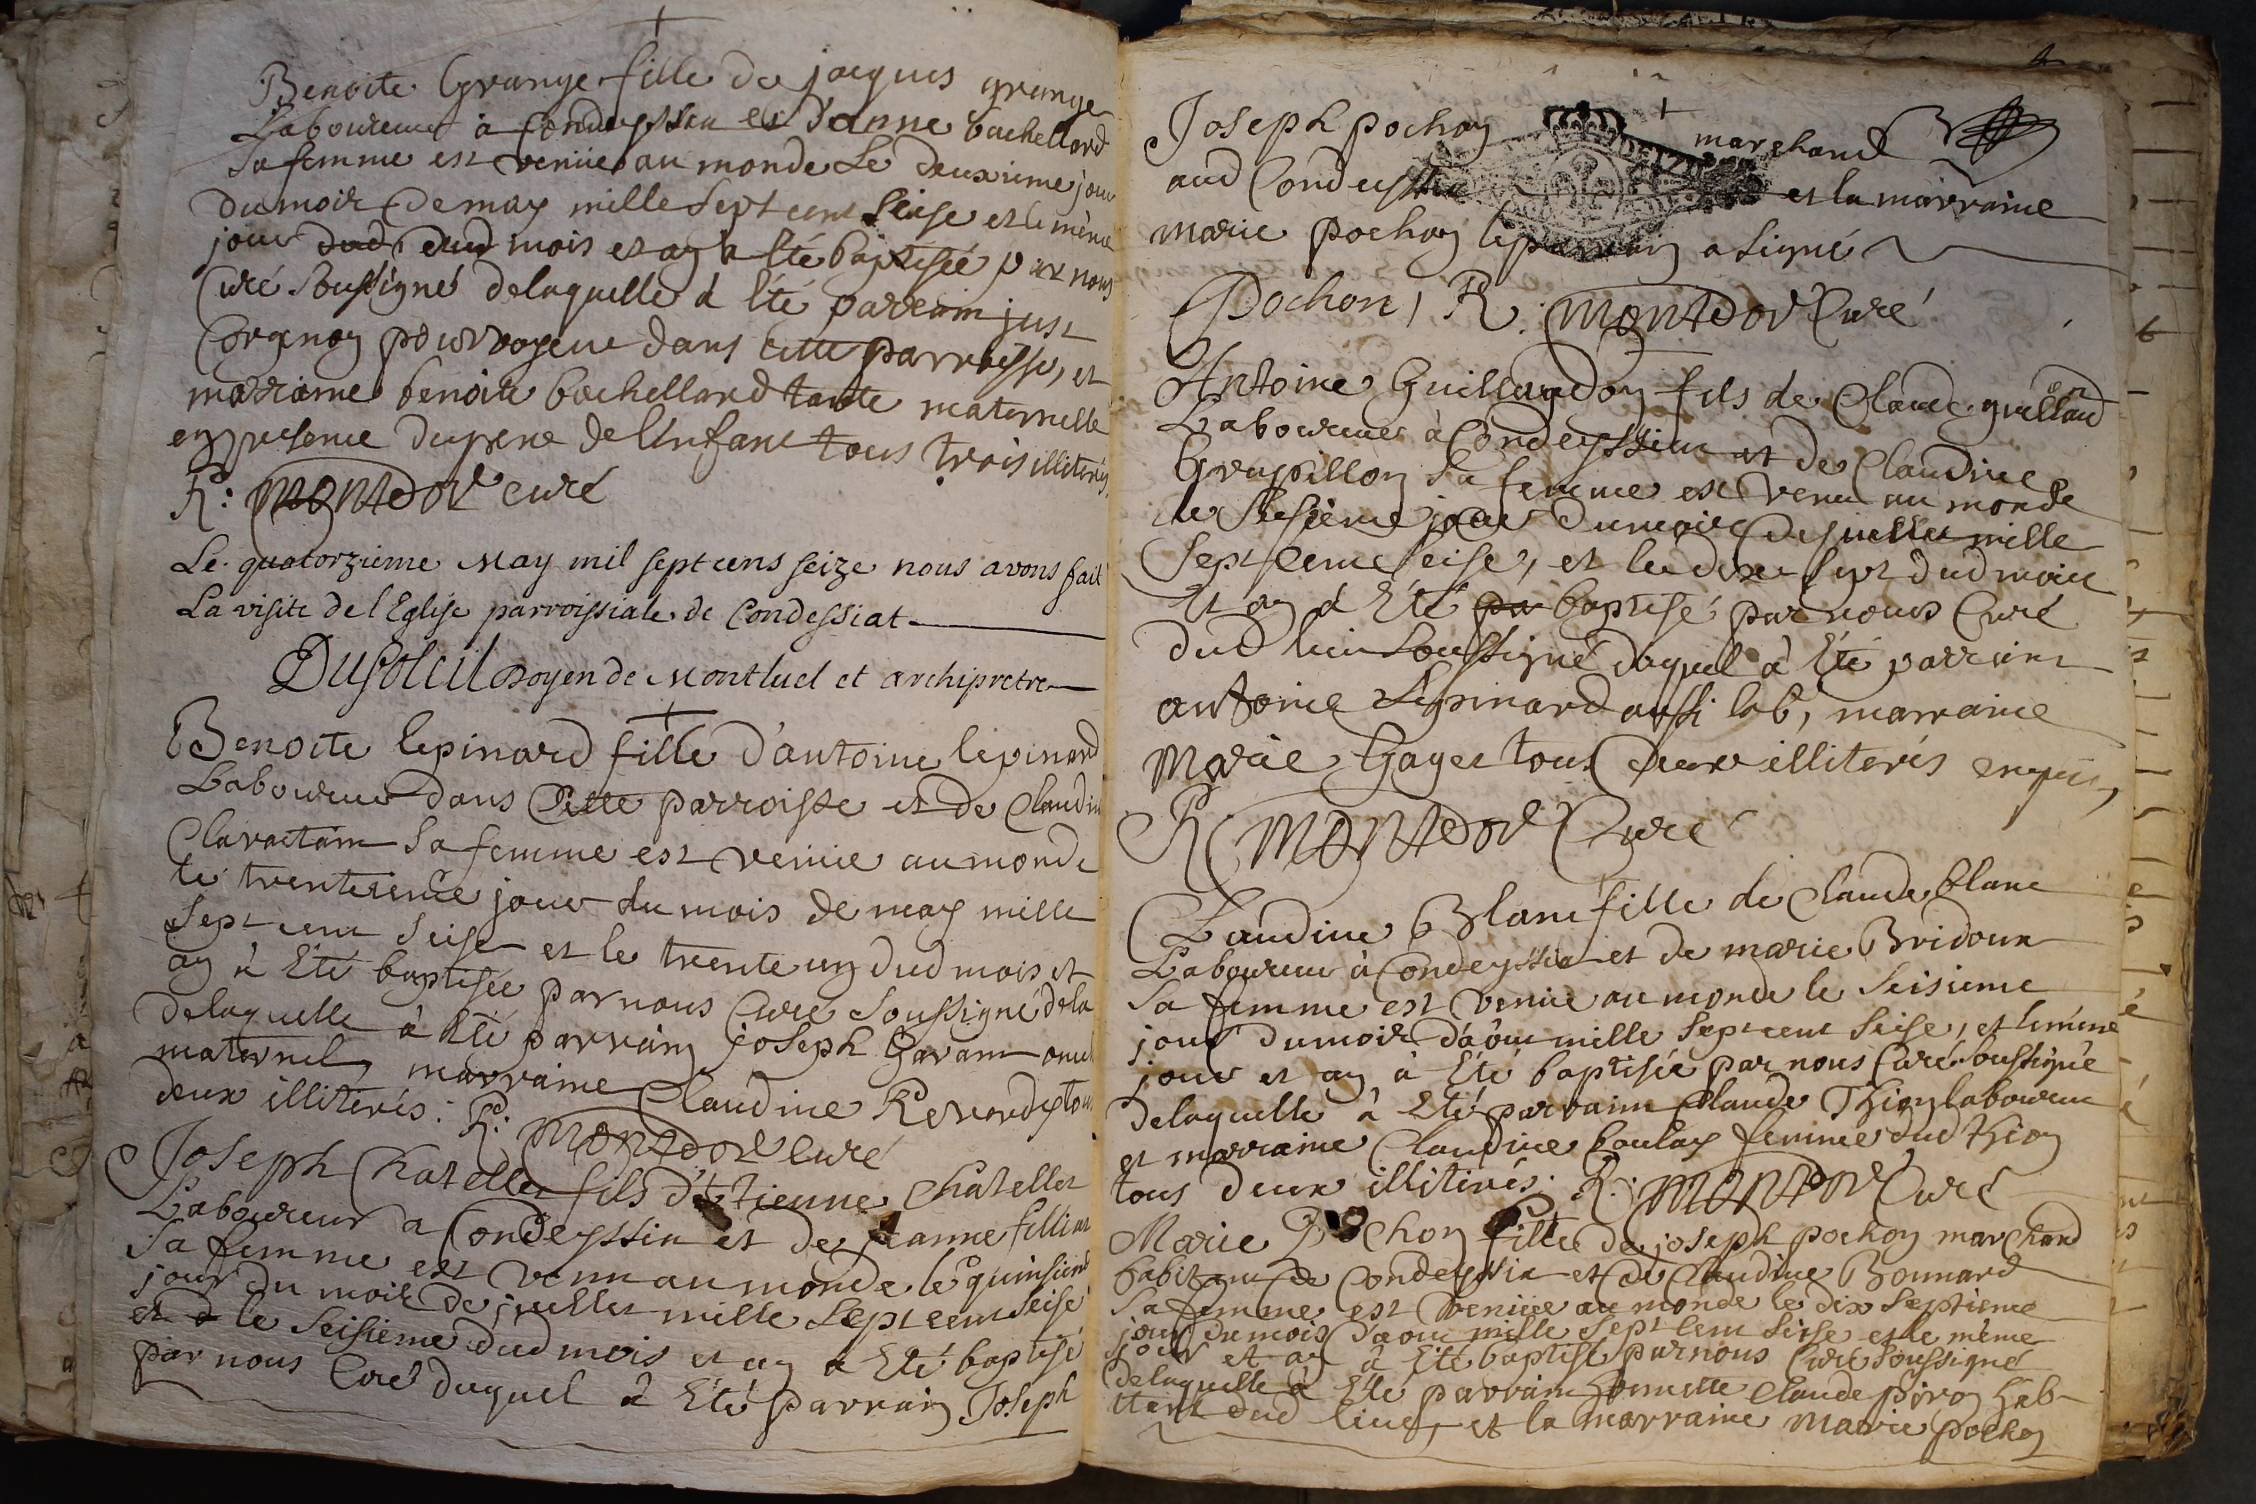 Benoite Grange fille de jacques grange
Laboureur à Condeyssia et Danne bachellard
Sa femme est venüe au monde Le deuxieme jour
du mois de may mille sept cent seise et le même
jour dud mois et an a été baptisée par nous
Curé Soussigné delaquelle à été parrain just
pourvoyeur dans cette parroisse, et
marraine benoite bachellard tante maternelle
en presence du pere de l'enfant tous trois illiterés.
R: Montdor curé
Le quatorzieme May mil sept cens seize nous avons fait
La visite de l'Eglise parroissiale de Condessiat
Dusoleil Doyen de Montluel et archipretre
Benoite lepinard fille d'antoine lepinard
Laboureur dans Cette parroisse et de Claudine
Sa femme est venüe au monde
le trentieme jour du mois de may mille
Sept cent seise et le trente un dud mois et
an à été baptisée par nous Curé Soussigné dela
delaquelle à été parrain joseph Garam oncle
maternel, marraine Claudine Revardy tous
deux illiterés: R: Montdor curé
Joseph Chatellet fils d'étienne Chatellet
Laboureur a Condeyssia et de jeanne
Sa femme est venu au monde le quinsieme
jour du mois de juillet mille sept cent seise
et le seisieme dud mois et an a été baptisé
par nous Curé duquel à été parrain Joseph
Joseph pochon marchand
aud Condeyssia et la marraine
marie pochon le parrain a signé
Pochon, R: Montdor Curé
Antoine Guillaudon fils de Claude guillaudon
Laboureur à Condeyssia et de Claudine
Grapillon Sa femme est venu au monde
le Seisieme jour du mois de juillet mille
Sept cent seise, et le dix sept dud mois
et an à été pa baptisé par nous Curé
dud lieu soussigné duquel à été parrain
antoine Lepinard aussi lab, marraine
Marie Gayet tous deux illiterés enquis,
R Montdor Curé
Claudine Blanc fille de Claude blanc
Laboureur à Condeyssia et de marie Bridoux
Sa femme est venüe au monde le seisieme
jour du mois d'aôut mille sept cent seise, et le même
jour et an à été baptisée par nous Curé soussigné
delaquelle à été parrain Claude Thion laboureur
et marraine Claudine boulay femme dud thion
tous deux illiterés: R: Montdor Curé
Marie Pochon fille de joseph pochon marchand
habitant de Condeyssia et de Claudine Bonnard
Sa femme est venüe au monde le dix septieme
jour du mois d'aout mille sept cent seise et le même
jour et an à été baptisé par nous Curé soussigné
delaquelle à été parrain honnette Claude piron hab-
itant dud lieu, et la marraine marie pochon